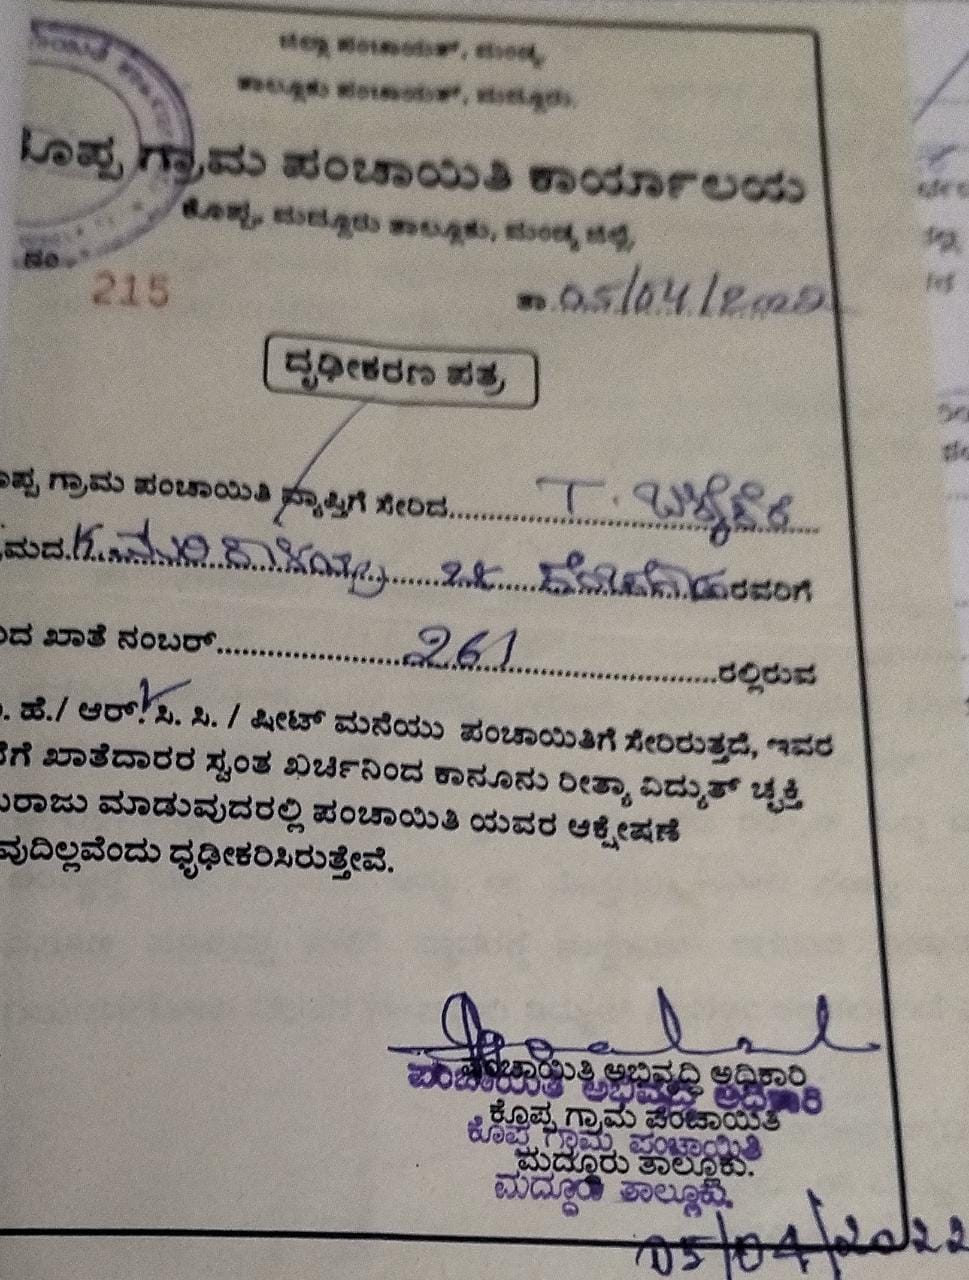 ಜಿಲ್ಲಾ ಪಂಚಾಯತ್, ಮಂಡ್ಯ
ತಾಲ್ಲೂಕು ಪಂಚಾಯತ್, ಮದ್ದೂರು.
ಕೊಪ್ಪ ಗ್ರಾಮ ಪಂಚಾಯಿತಿ ಕಾರ್ಯಾಲಯ
ಕೊಪ್ಪ, ಮದ್ದೂರು ತಾಲ್ಲೂಕು, ಮಂಡ್ಯ ಜಿಲ್ಲೆ.
ನಂ.
215
ತಾ. 05/04/2022
ದೃಢೀಕರಣ ಪತ್ರ
ಪ್ಪ ಗ್ರಾಮ ಪಂಚಾಯಿತಿ ವ್ಯಾಪ್ತಿಗೆ ಸೇರಿದ T.
ಮದ ರವರಿಗೆ
ದ ಖಾತೆ ನಂಬರ್ 261 ರಲ್ಲಿರುವ
. ಹೆ./ ಆರ್. ಸಿ. ಸಿ. / ಶೀಟ್ ಮನೆಯು ಪಂಚಾಯಿತಿಗೆ ಸೇರಿರುತ್ತದೆ, ಇವರ
ಗೆ ಖಾತೆದಾರರ ಸ್ವಂತ ಖರ್ಚಿನಿಂದ ಕಾನೂನು ರೀತ್ಯಾ ವಿದ್ಯುತ್ ಚ್ಛಕ್ತಿ
ರಾಜು ಮಾಡುವುದರಲ್ಲಿ ಪಂಚಾಯಿತಿ ಯವರ ಆಕ್ಷೇಪಣೆ
ವುದಿಲ್ಲವೆಂದು ಧೃಢೀಕರಿಸಿರುತ್ತೇವೆ.
ಪಂಚಾಯಿತಿ ಅಭಿವೃದ್ಧಿ ಅಧಿಕಾರಿ
ಪಂಚಾಯಿತಿ ಅಭಿವೃದ್ಧಿ ಅಧಿಕಾರಿ
ಕೊಪ್ಪ ಗ್ರಾಮ ಪಂಚಾಯಿತಿ
ಕೊಪ್ಪ ಗ್ರಾಮ ಪಂಚಾಯಿತಿ
ಮದ್ದೂರು ತಾಲ್ಲೂಕು.
ಮದ್ದೂರು ತಾಲ್ಲೂಕು.
05/04/2022